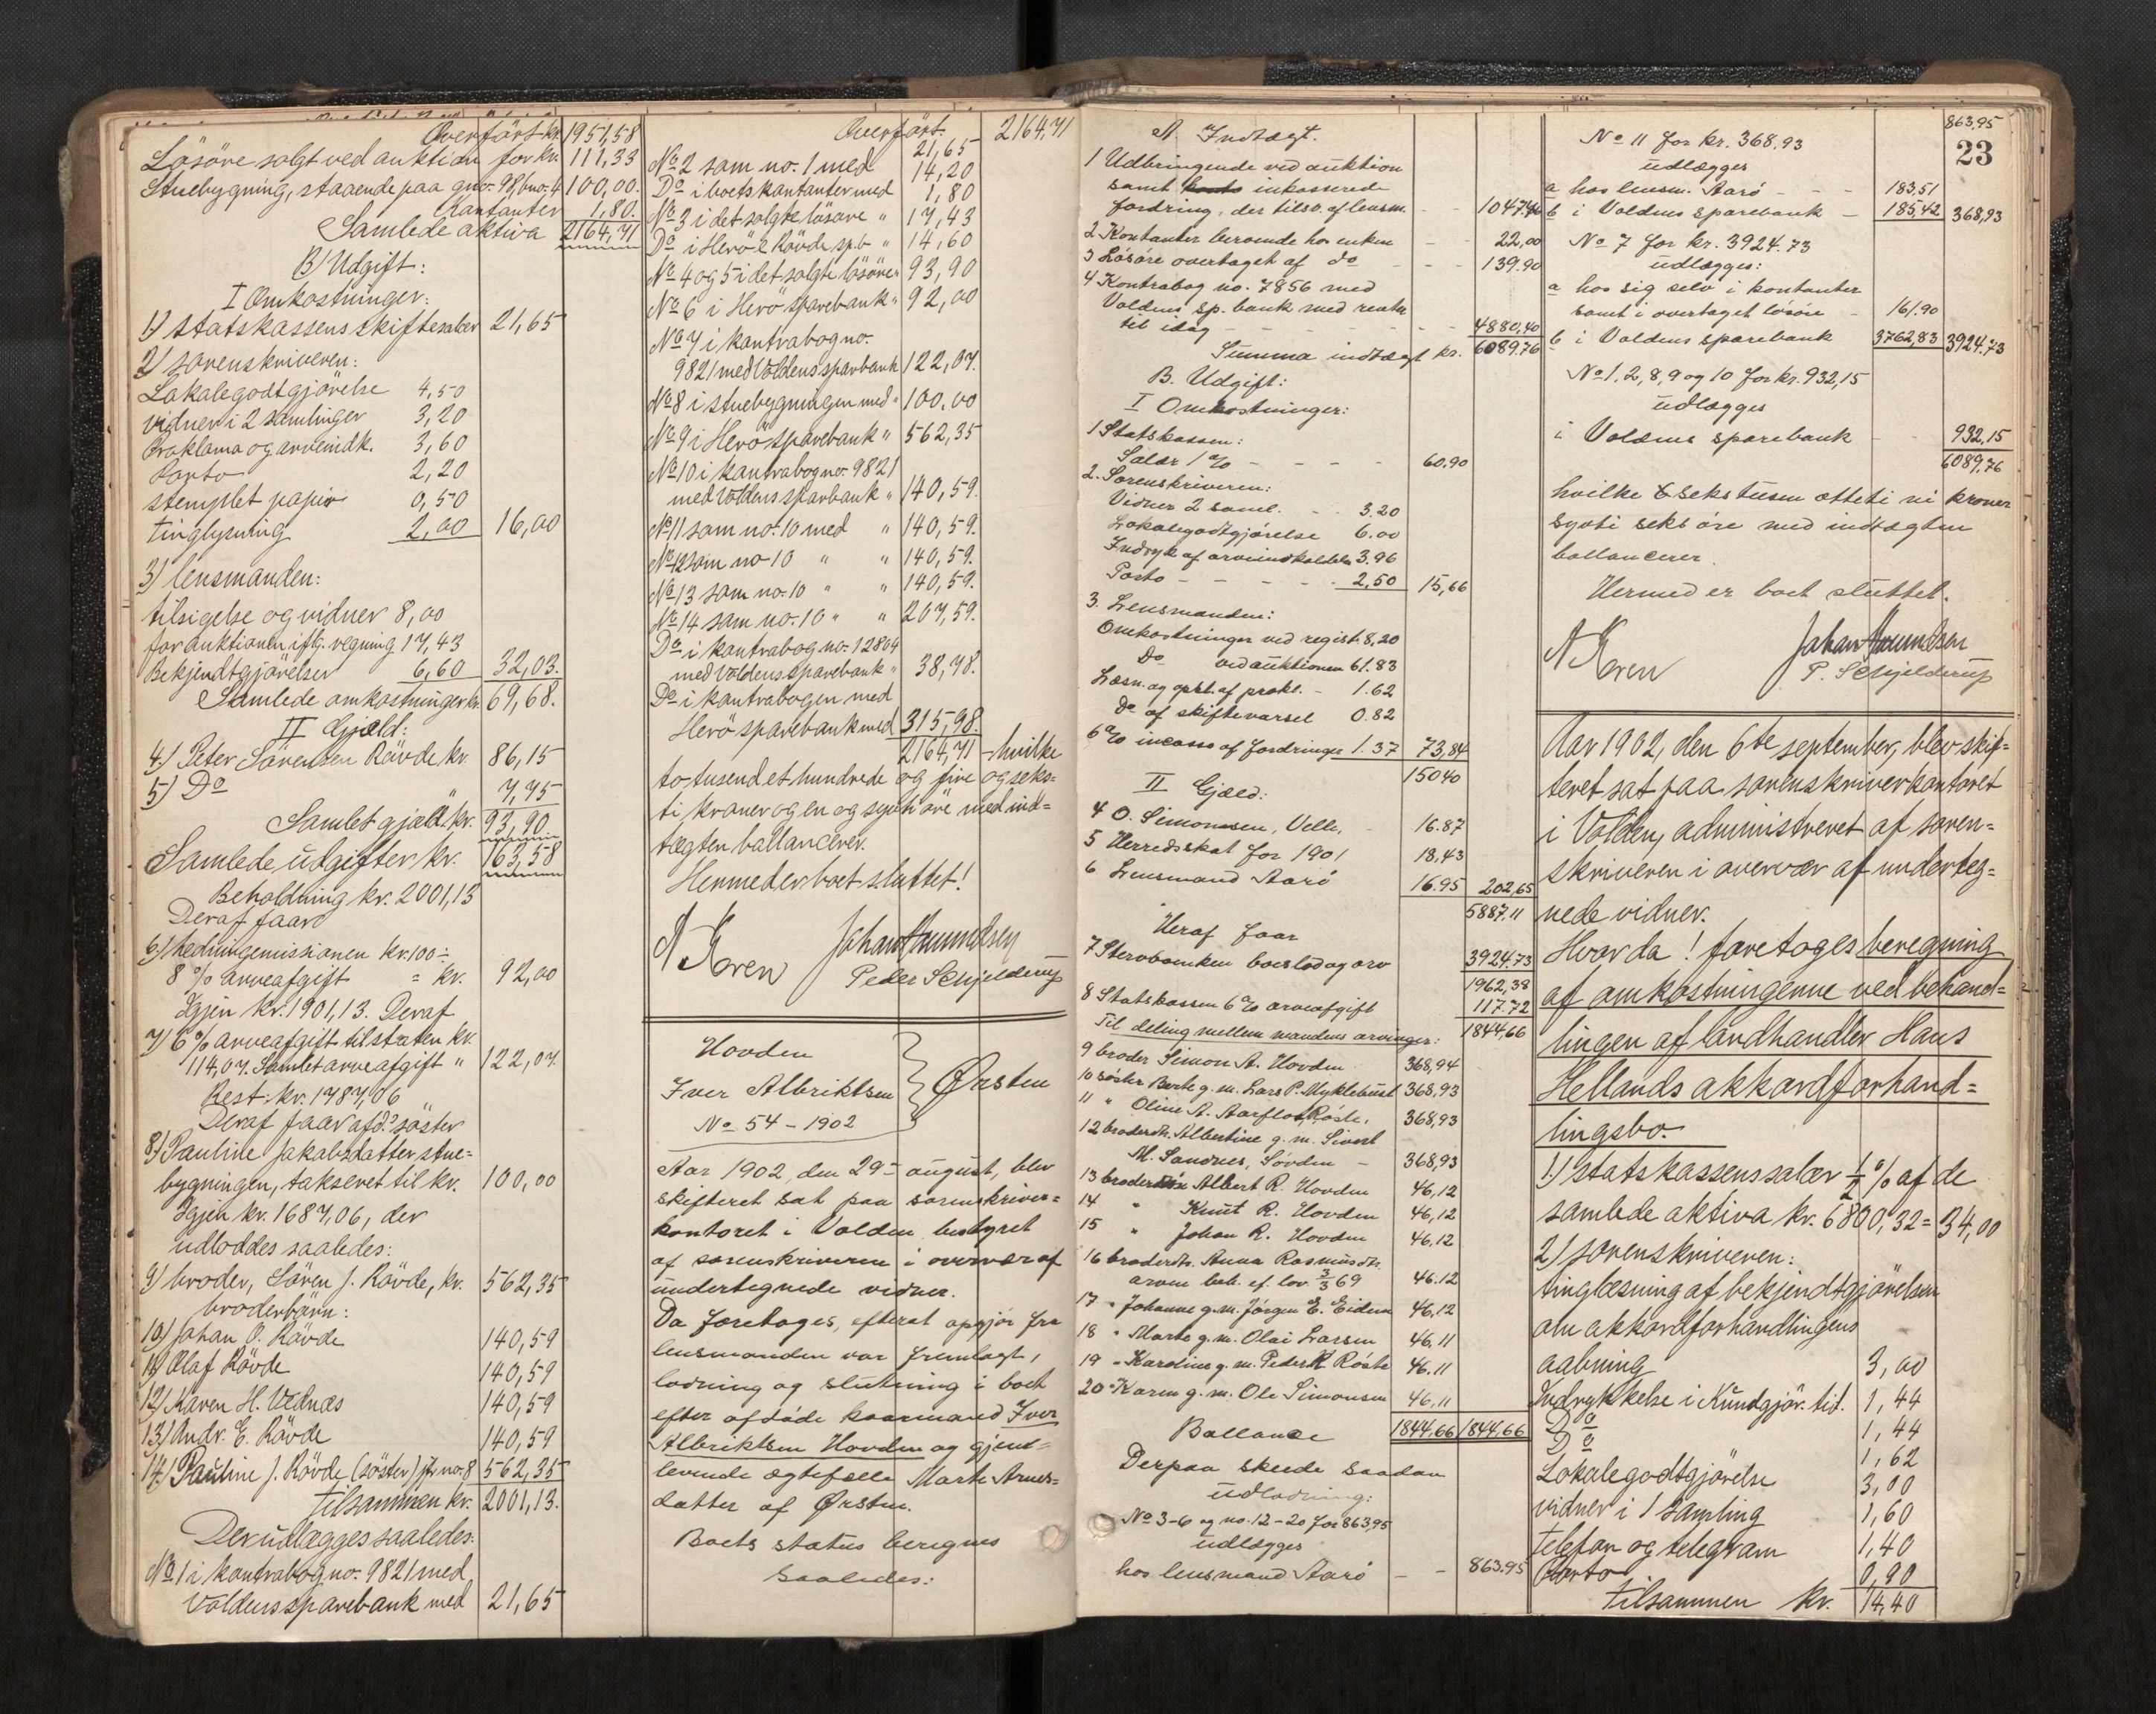 Overført kr. 1951,58
Løsøre solgt ved auktion for kr. 111,33
Stuebygning, staaende paa gno. 98, bno. 4 100,00.
Kontanter 1,80.
Samlede aktiva 2164,71
B) Udgift:
I Omkostninger:
1) Statskassens skiftesalær 21,65
2) Sorenskriveren:
Lokalegodtgjörelse 4,50
vidner i 2 samlinger 3,20
Proklama og arveindk. 3,60
Porto 2,20
stemplet papir 0,50
tinglysning 2,00 16,00
3) lensmanden:
tilsigelse og vidner 8,00
for auktionen iflg. regning 17,43
Bekjendtgjörelser 6,60 32,03.
Samlede omkostninger kr. 69,68.
II Gjæld:
4) Peter Sörensen Rövde kr. 86,15
5) Do " 7,75
Samlet gjæld kr. 93,90
Samlede udgifter kr. 163,58
Beholdning kr. 2001,13
Deraf faar
6) hedningemissionen kr. 100 ÷
8 % arveafgift = kr. 92,00
Igjen kr. 1901,13. Deraf
7) 6 % arveafgift til staten kr.
114,07. Samlet arveafgift " 122,07.
Rest kr. 1787,06
Deraf faar afd.s söster
8) Pauline Jakobsdatter stue-
bygningen, takseret til kr. 100,00
Igjen kr. 1687,06, der
udloddes saaledes:
9) broder, Sören J. Rövde, kr. 562,35
broderbörn:
10) Johan O. Rövde 140,59
11) Olaf Rövde 140,59
12) Karen H. Vednæs 140,59
13) Andr. E. Rövde 140,59
14) Pauline J. Rövde (söster) jfr no. 8 562,35
tilsammen kr. 2001,13.
Der udlægges saaledes:
No 1 i kontrabog no. 9821 med
Voldens sparebank med 21,65
Overført. 2164,71
No 2 som no. 1 med 21,65
14,20
Do i boets kontanter med 1,80
No 3 i det solgte løsøre " 17,43
Do i Herö & Rövde sp.b " 14,60
No 4 og 5 i det solgte løsøre " 93,90
No 6 i Herö sparebank " 92,00
No 7 i kontrabog no.
9821 med Voldens sparbank 122,07.
No 8 i stuebygningen med " 100,00
No 9 i Herö sparebank " 562,35
No 10 i kontrabog no. 9821
med Voldens sparbank " 140,59.
No 11 som no. 10 med " 140,59.
No 12 som no. 10 " " 140,59.
No 13 som no. 10 " " 140,59.
No 14 som no. 10 " " 207,59.
Do i kontrabog no. 12804
med Voldens sparebank " 38,78.
Do i kontrabogen med
Herö sparebank med 315,98.
2164,71 - hvilke
to tusend et hundrede og fire og seks-
ti kroner og en og sytti öre med ind-
tægten ballancerer.
Hermed er boet sluttet!
N Koren Johan Amundsen
Peder Schjelderup
Hovden
Iver Albriktsen } Ørsten
No 54 - 1902
Aar 1902, den 29- august, blev
skifteret sat paa sorenskriver-
kontoret i Volden, bestyret
af sorenskriveren i overvær af
undertegnede vidner.
Da foretoges, efterat opgjör fra
lensmanden var fremlagt,
lodning og slutning i boet
efter afdöde kaarmand Iver
Albriktsen Hovden og gjen-
levende ægtefælle Marte Arnes-
datter af Ørsten.
Boets status beregnes
saaledes:
A. Indtægt.
1 Udbringende ved auktion
samt inkasserede
fordring, der tilsv. af lensm. - - 1047.46
2 Kontanter beroende hos enken - - 22,00
3 Løsøre overtaget af do - - - 139.90
4 Kontrabog no. 7856 med
Voldens sp. bank med renter
til idag - - - - - - 4880,40
Summa indtægt kr. 6089.76
B. Udgift:
I Omkostninger:
1 Statskassen:
Salær 1 % - - - - 60.90
2. Sorenskriveren:
Vidner 2 saml. - - 3.20
Lokalegodtgjörelse 6.00
Indryk af arveindkaldelse 3.96
Porto - - - - - 2,50 15,66
3. Lensmanden:
Omkostninger ved regist. 8,20
Do ved auktionen 61.83
Læsn. og opsl. af prokl. - 1.62
Do af skiftevarsel 0.82
6 % incasso af fordringer 1.37 73,84
150 40
II Gjæld:
4 O. Simonsen, Velle, - 16.87
5 Herredsskat for 1901 18,43
6 Lensmand Aarö 16.95 202,65
5887.11
Heraf faar
7 Stervboenken boeslod og arv 3924.73
1962,38
8 Statskassen 6 % arveafgift 117.72
Til deling mellem mandens arvinger: 1844,66
9 broder Simon A. Hovden 368,94
10 söster Berte g. m. Lars P. Myklebust 368,93
11 " Oline A. Aarflot, Röste, 368,93
12 broderdtr. Albertine g. m. Sivert
M. Sandnes, Sövden - 368,93
13 brodersön Albert R. Hovden 46,12
14 " Knut R. Hovden 46,12
15 " Johan R. Hovden 46,12
16 broderdtr. Anna Rasmusdtr.
arven beh. ef. lov 3/3 69 46.12
17 " Johanne g. m. Jörgen E. Eidem 46,12
18 " Marte g. m. Olai Larsen 46,11
19 " Karoline g. m. Peder K Röste 46.11
20 " Karen g. m. Ole Simonsen 46,11
Ballance 1844,66 1844,66
Derpaa skede saadan
udlodning:
No 3-6 og no. 12-20 for 863,95
udlægges
hos lensmand Aarö - - 863.95
863,95
23
No 11 for kr. 368.93
udlægges
a hos lensm. Aarö - - - 183,51
b i Voldens sparebank - 185,42 368,93
No 7 for kr. 3924.73
udlægges:
a hos sig selv i kontanter
samt i overtaget løsøre - 161.90
b i Voldens sparebank 3762,83 3924.73
No 1, 2, 8, 9 og 10 for kr. 932,15
udlægges
i Voldens sparebank - - 932,15
6089,76
hvilke sekstusen otteti ni kroner
sytti seks öre med indtægten
ballancerer.
Hermed er boet sluttet.
N Koren Johan Amundsen
P. Schjelderup
Aar 1902, den 6te september, blev skif-
teret sat paa sorenskriverkontoret
i Volden, administreret af soren-
skriveren i overvær af underteg-
nede vidner.
Hvor da! foretoges beregning
af omkostningerne ved behand-
lingen af landhandler Hans
Hellands akkordforhand-
lingsbo.
1) Statskassens salær 1/2 % af de
samlede aktiva kr. 6800,32 = 34,00
2) Sorenskriveren:
tinglæsning af bekjendtgjörelsen
om akkordforhandlingens
aabning 3,00
Indrykkelse i Kundgjör. tid. 1,44
Do 1,44
Do 1,62
Lokalegodtgjörelse 3,00
vidner i 1 samling 1,60
telefon og telegram 1,40
Porto 0,90
tilsammen kr. 14,40